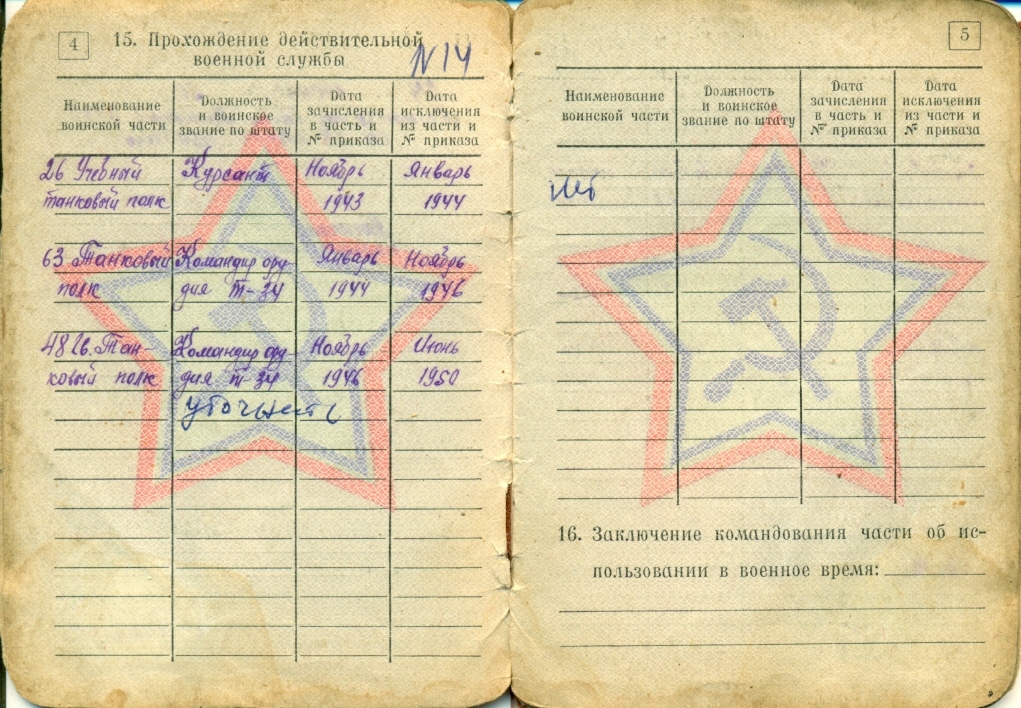 4
15. Прохождение действительной
военной службы
N 14
Наименование
воинской части
Должность
и воинское
звание по штату
Дата
зачисления
в часть и
№ приказа
Дата
исключения
из части и
№ приказа
26 Учебный Курсант Ноябрь Январь
танковый полк 1943 1944
63 Танковый Командир ору- Январь Ноябрь
полк дия Т-34 1944 1946
48 Гв. Тан- Командир ору- Ноябрь Июнь
ковый полк дия Т-34 1946 1950
уточнить
5
Наименование
воинской части
Должность
и воинское
звание по штату
Дата
зачисления
в часть и
№ приказа
Дата
исключения
из части и
№ приказа
16. Заключение командования части об ис-
пользовании в военное время: